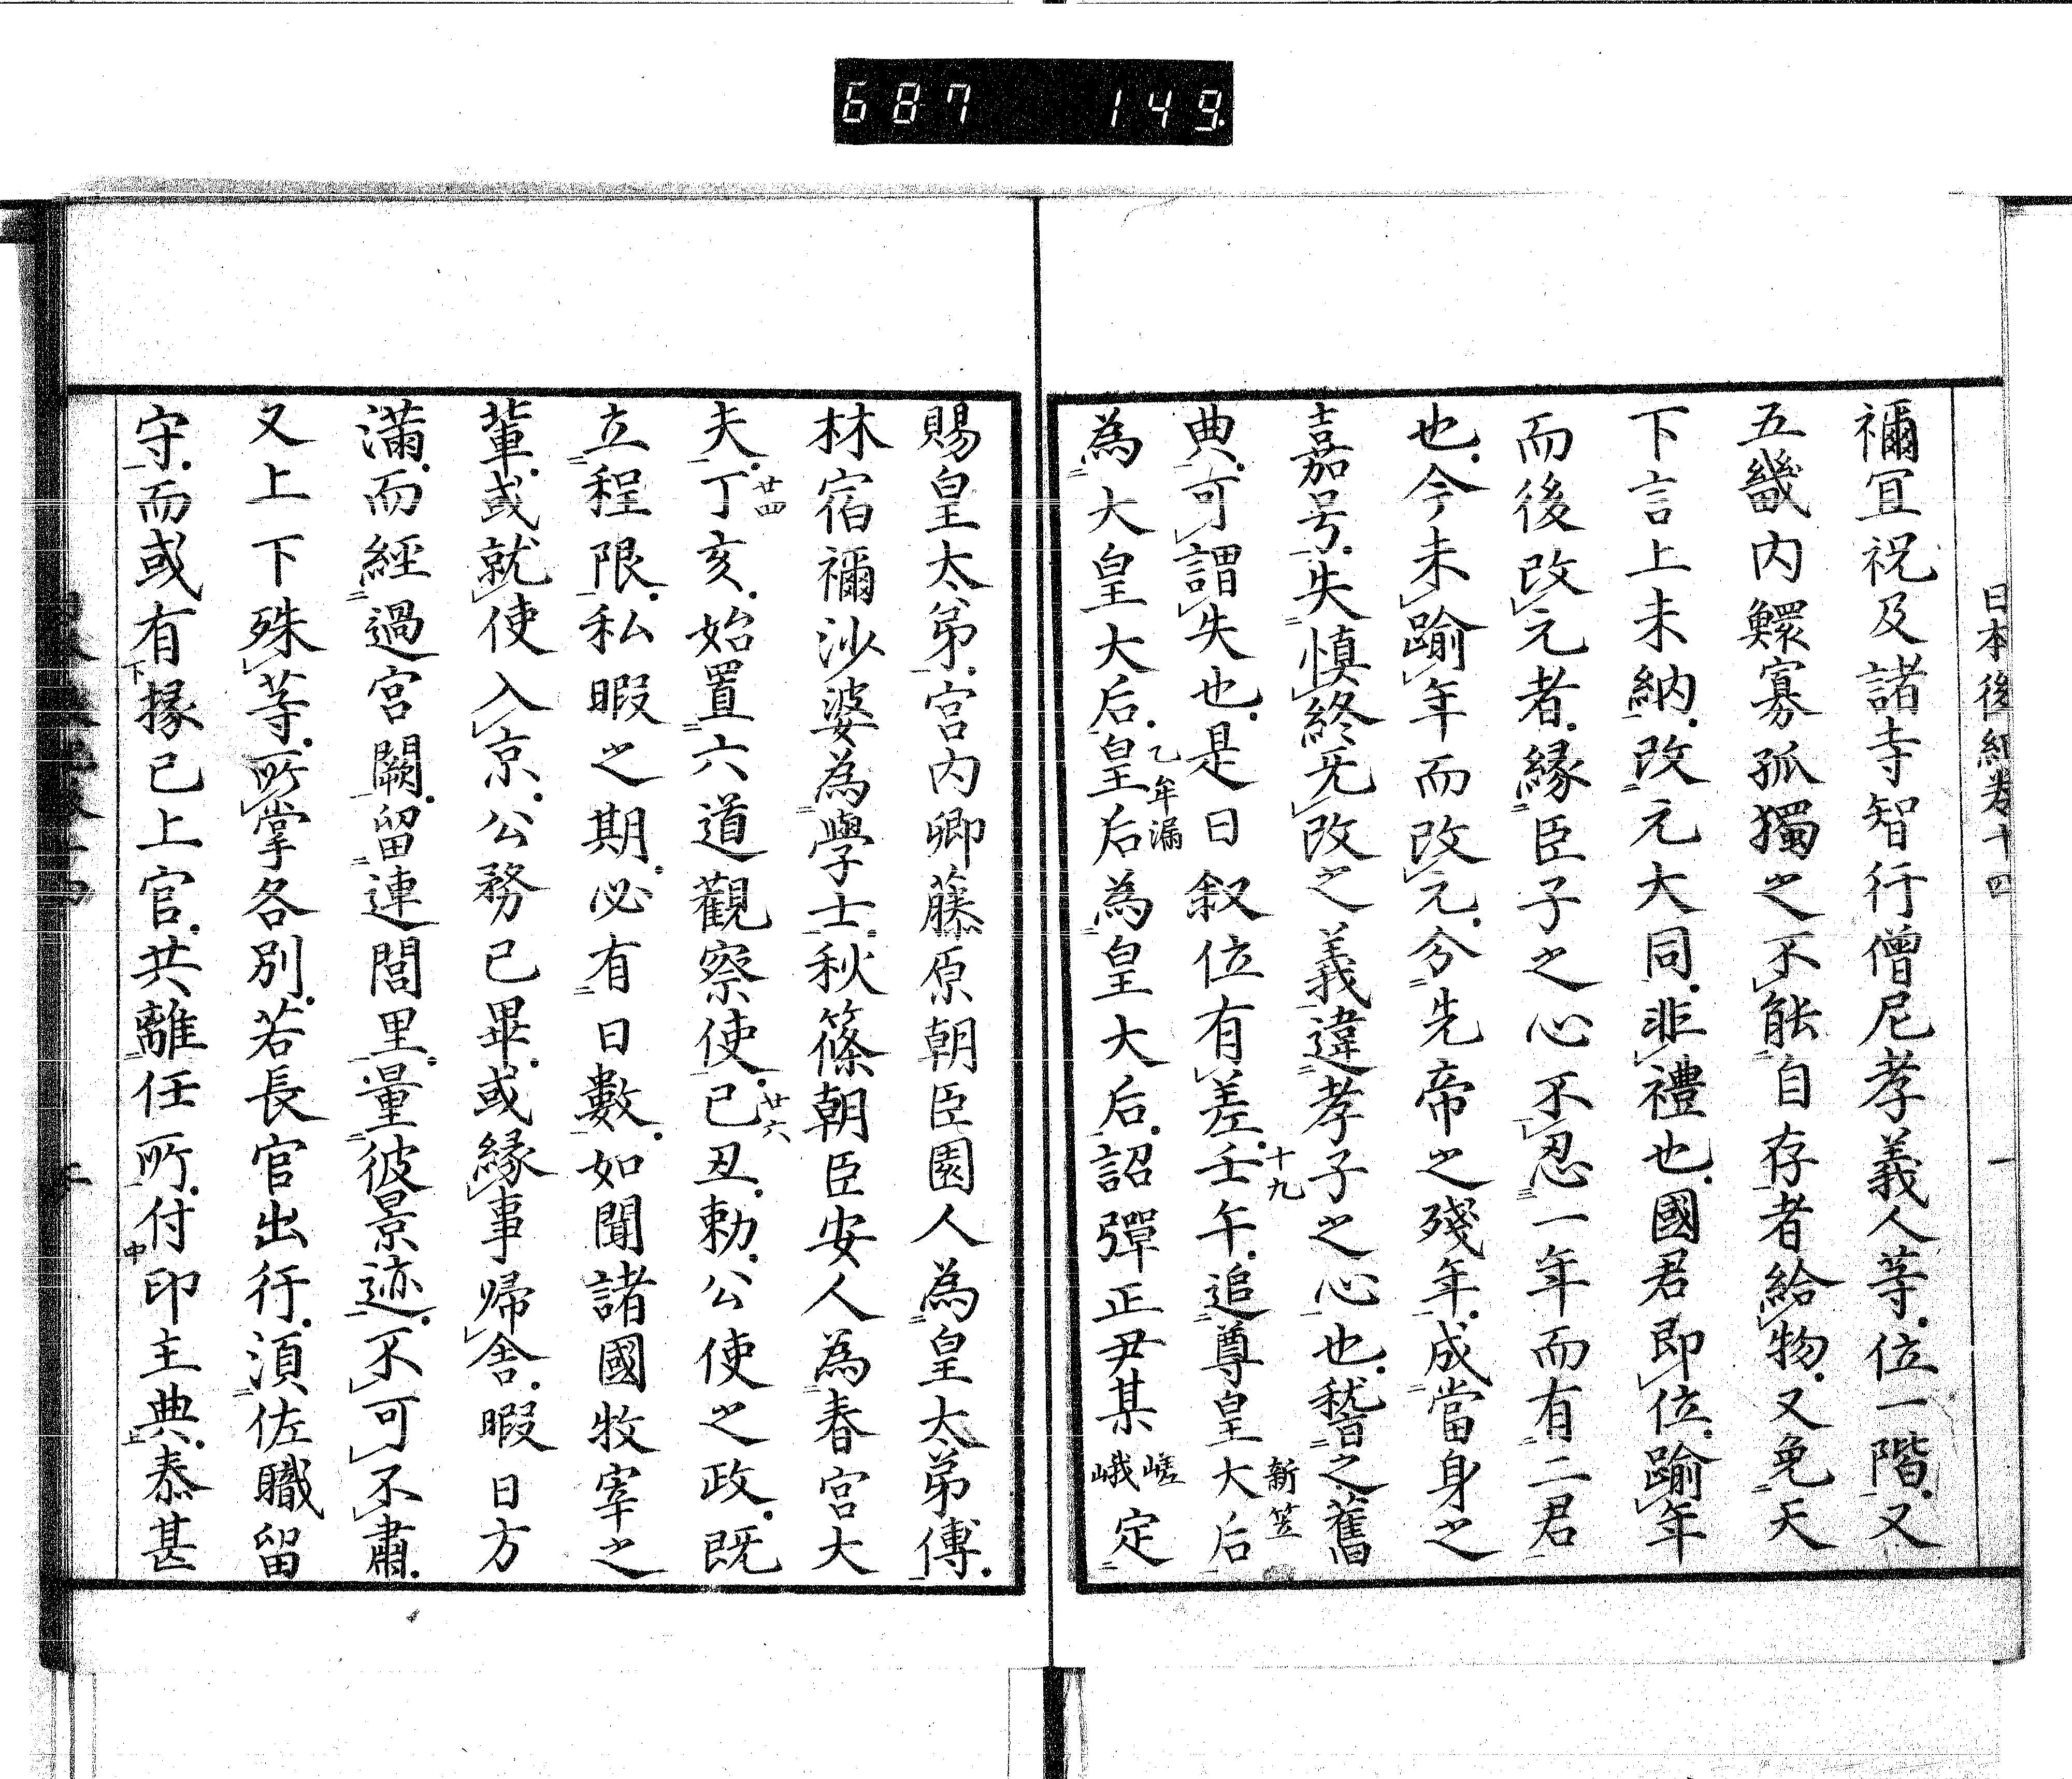 687 149
日本後紀卷十四 一
禰宜祝及諸寺智行僧尼孝義人等位一階又
五畿内鰥寡孤獨之不能自存者給物又免天
下言上未納改元大同非禮也國君即位踰年
而後改元者緣臣子之心不忍一年而有二君
也今未踰年而改元分先帝之殘年成當身之
嘉号失慎終无改之義違孝子之心也稽之舊
典可謂失也是日叙位有差壬午追尊皇大后
十九
新笠
為大皇大后皇后為皇大后詔彈正尹某嵯峨定
乙牟漏
賜皇太弟宮内卿藤原朝臣園人為皇太弟傅
林宿禰沙婆為學士秋篠朝臣安人為春宮大
夫丁亥始置六道觀察使己丑勅公使之政既
廿四
廿六
立程限私暇之期必有日數如聞諸國牧宰之
輩或就使入京公務已畢或緣事歸舎暇日方
滿而經過宮闕留連閭里量彼景迹不可不肅
又上下殊等所掌各別若長官出行須佐職留
守而或有掾已上官共離任所付印主典忝甚
下
中
上